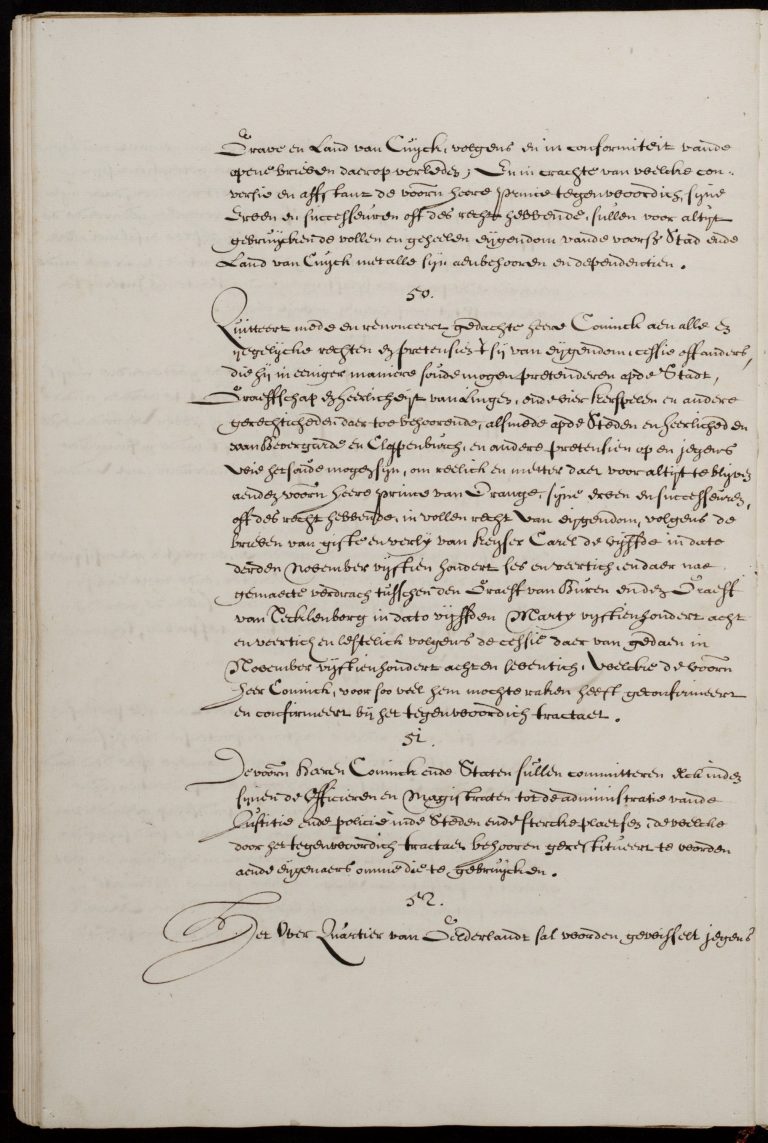 Grave en Land van Cuyck, volgens en in conformiteit vande
opene brieven daerop verleden; En in crachte van welcke con-
versie en affstant de voorn heere prince tegenwoordich, syne
Erven en successeuren off des recht hebbende, sullen voor altyt
gebruycken de vollen en geheelen eygendom vande voorsz Stad ende
Land van Cuyck met alle syn aenbehooren en dependentien.
50.
Quitteert mede en renonceert gedachte heere Coninck aen alle en
ijegelycke rechten en pretensien t sy van eygendom, cessie off anders,
die hy in eeniger maniere soude mogen pretenderen op de Stadt,
Graeffschap en heerlicheyt van Linges, ende vier kerspelen en andere
gerechticheden daer toe behoorende, als mede op de Steden en heerlicheden
van Bevergarde en Cloppenburch, en andere pretensien op en jegens
wie het soude mogen syn, om reelick en immer daer voor altyt te blyven
aenden voorn heere prince van Orange, syne erven en successeuren,
off des recht hebbende, in vollen recht van eygendom, volgens de
brieven van gifte en verly van Keyser Carel de vyffde in dato
derden November vyftien hondert ses en veertich, en daer nae
gemaecte verdrach tusschen den Graeff van Buren en den Graeff
van Tecklenborg in dato vyffden Marty vyftienhondert acht
en veertich en lestelick volgens de cessie daer van gedaen in
November vyftienhondert acht en seventich, Welcke de voorn
Heer Coninck, voor soo veel hem mochte raken heeft geconfirmeert
en confirmeert by het tegenwoordich tractaet.
51.
De voorn Heeren Coninck ende Staten sullen committeren elck inden
synen de Officieren en Magistraten tot de administratie vande
Justitie ende policie inde Steden ende stercke plaetsen, de welcke
door het tegenwoordich tractaet behooren gerestitueert te worden
aende eygenaers omme die te gebruycken.
52.
Het Over Quartier van Gelderlandt sal worden gewisselt jegens